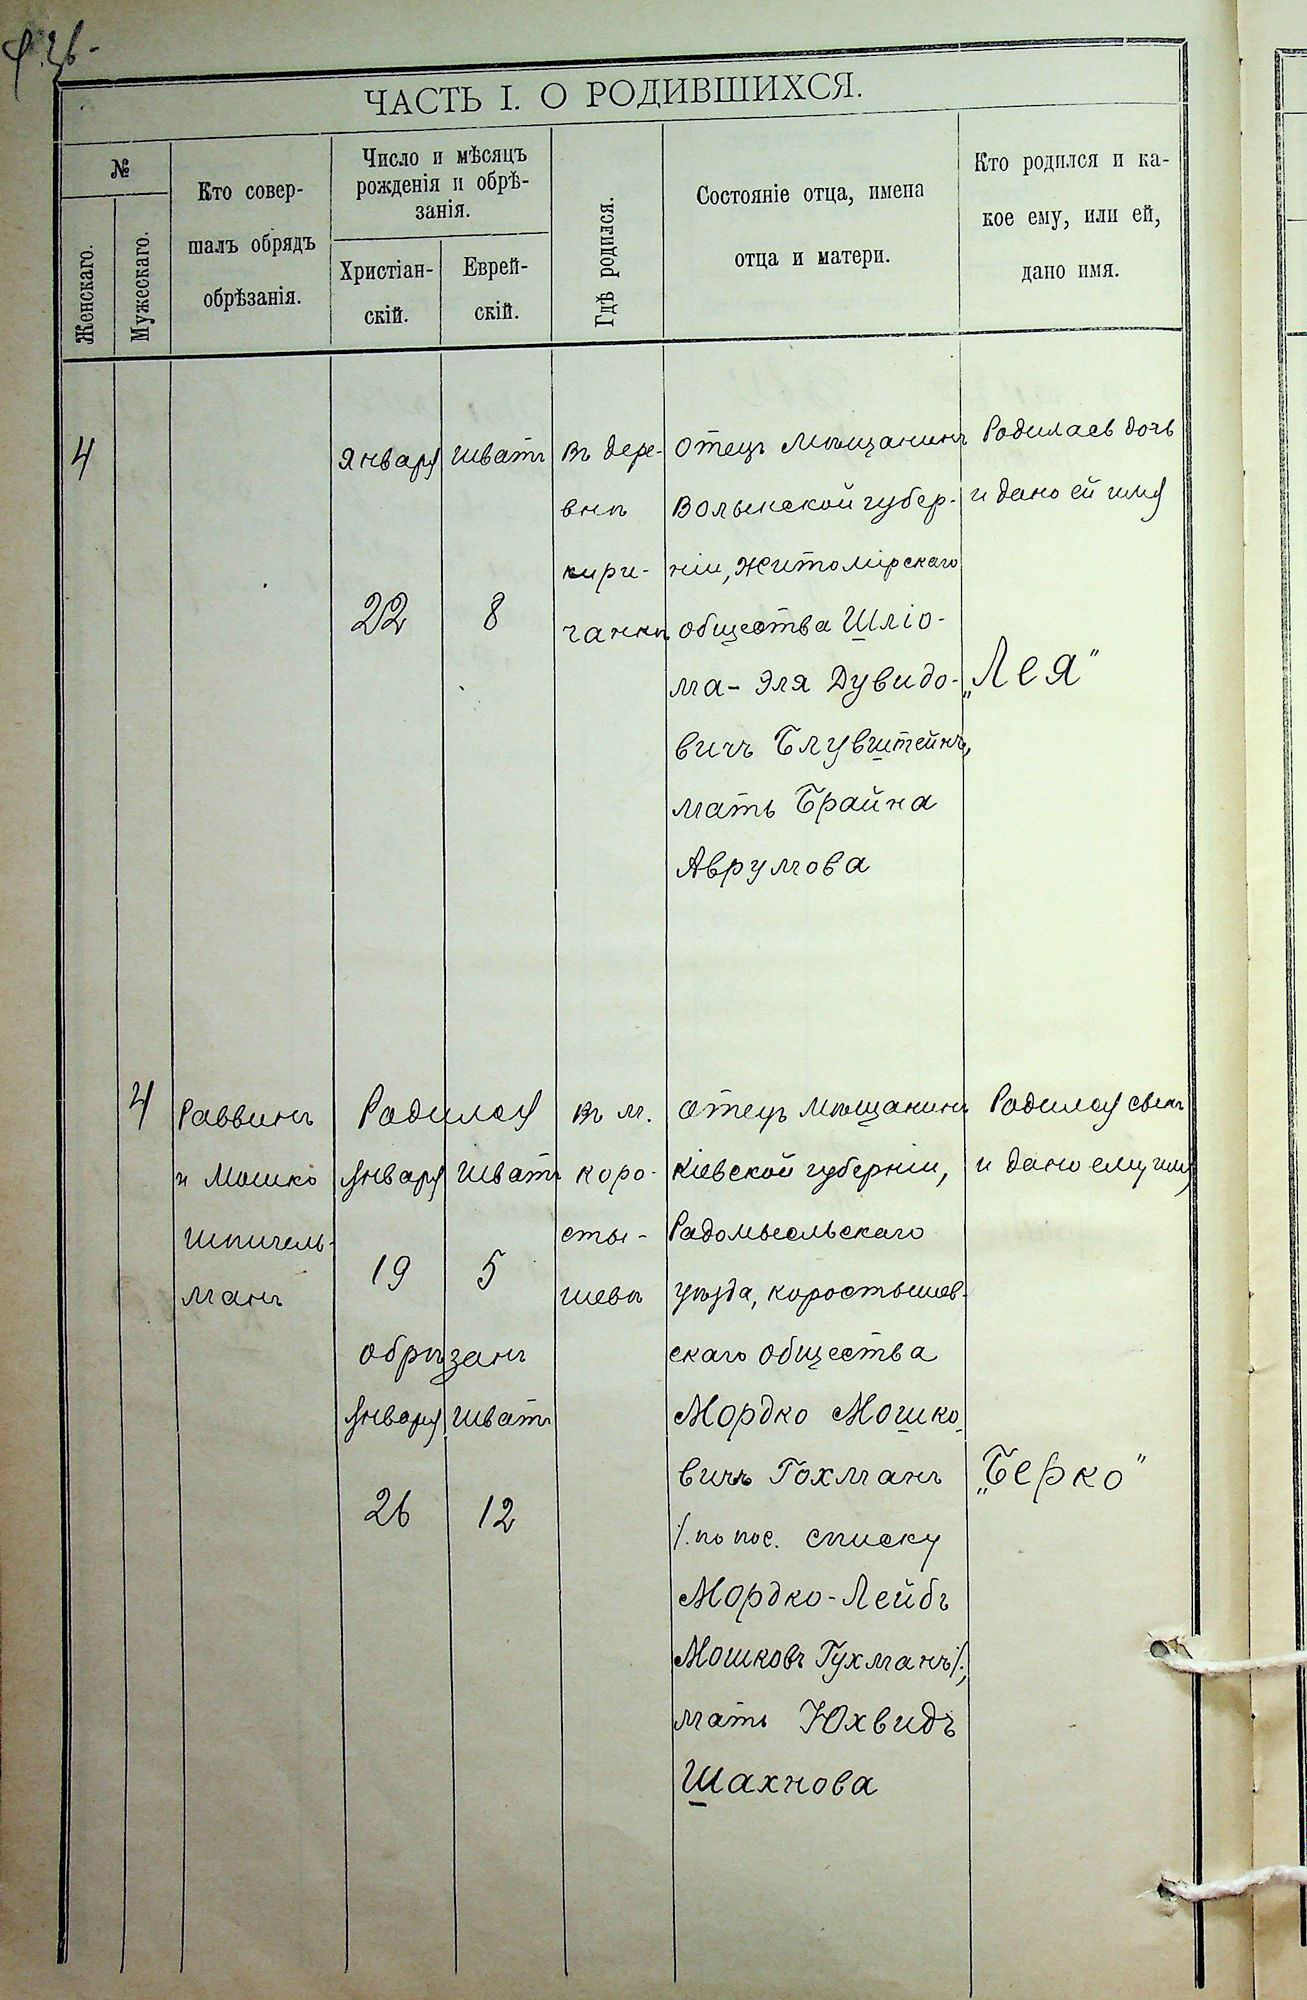 ЧАСТЬ I. О РОДИВШИХСЯ.
№
Женскаго.
Мужескаго.
Кто совер-
шалъ обрядъ
обрѣзанія.
Число и мѣсяцъ
рожденія и обрѣ-
занія.
Христіан-
скій.
Еврей-
скій.
Гдѣ родился.
Состояніе отца, имена
отца и матери.
Кто родился и ка-
кое ему, или ей,
дано имя.
4
Января
22
Шватъ
8
Въ дере-
внѣ
Кири-
чанкѣ
Отецъ мѣщанинъ
Волынской губер-
ніи, Житомірскаго
общества Шліо-
ма-Эля Дувидо-
вичъ Блувштейнъ,
мать Брайна
Аврумова
Родилась дочь
и дано ей имя
„Лея"
4
Раввинъ
и Мошко
Шпигель-
манъ
Родился
Января Шватъ
19 5
обрѣзанъ
Января Шватъ
26 12
Въ м.
Коро-
сты-
шевѣ
Отецъ мѣщанинъ
Кіевской губерніи,
Радомысльскаго
уѣзда, Коростышев-
скаго общества
Мордко Мошко-
вичъ Гохманъ
/. по пос. списку
Мордко-Лейбъ
Мошковъ Гухманъ/.,
мать Юхвидъ
Шахнова
Родился сынъ
и дано ему имя
„Берко"